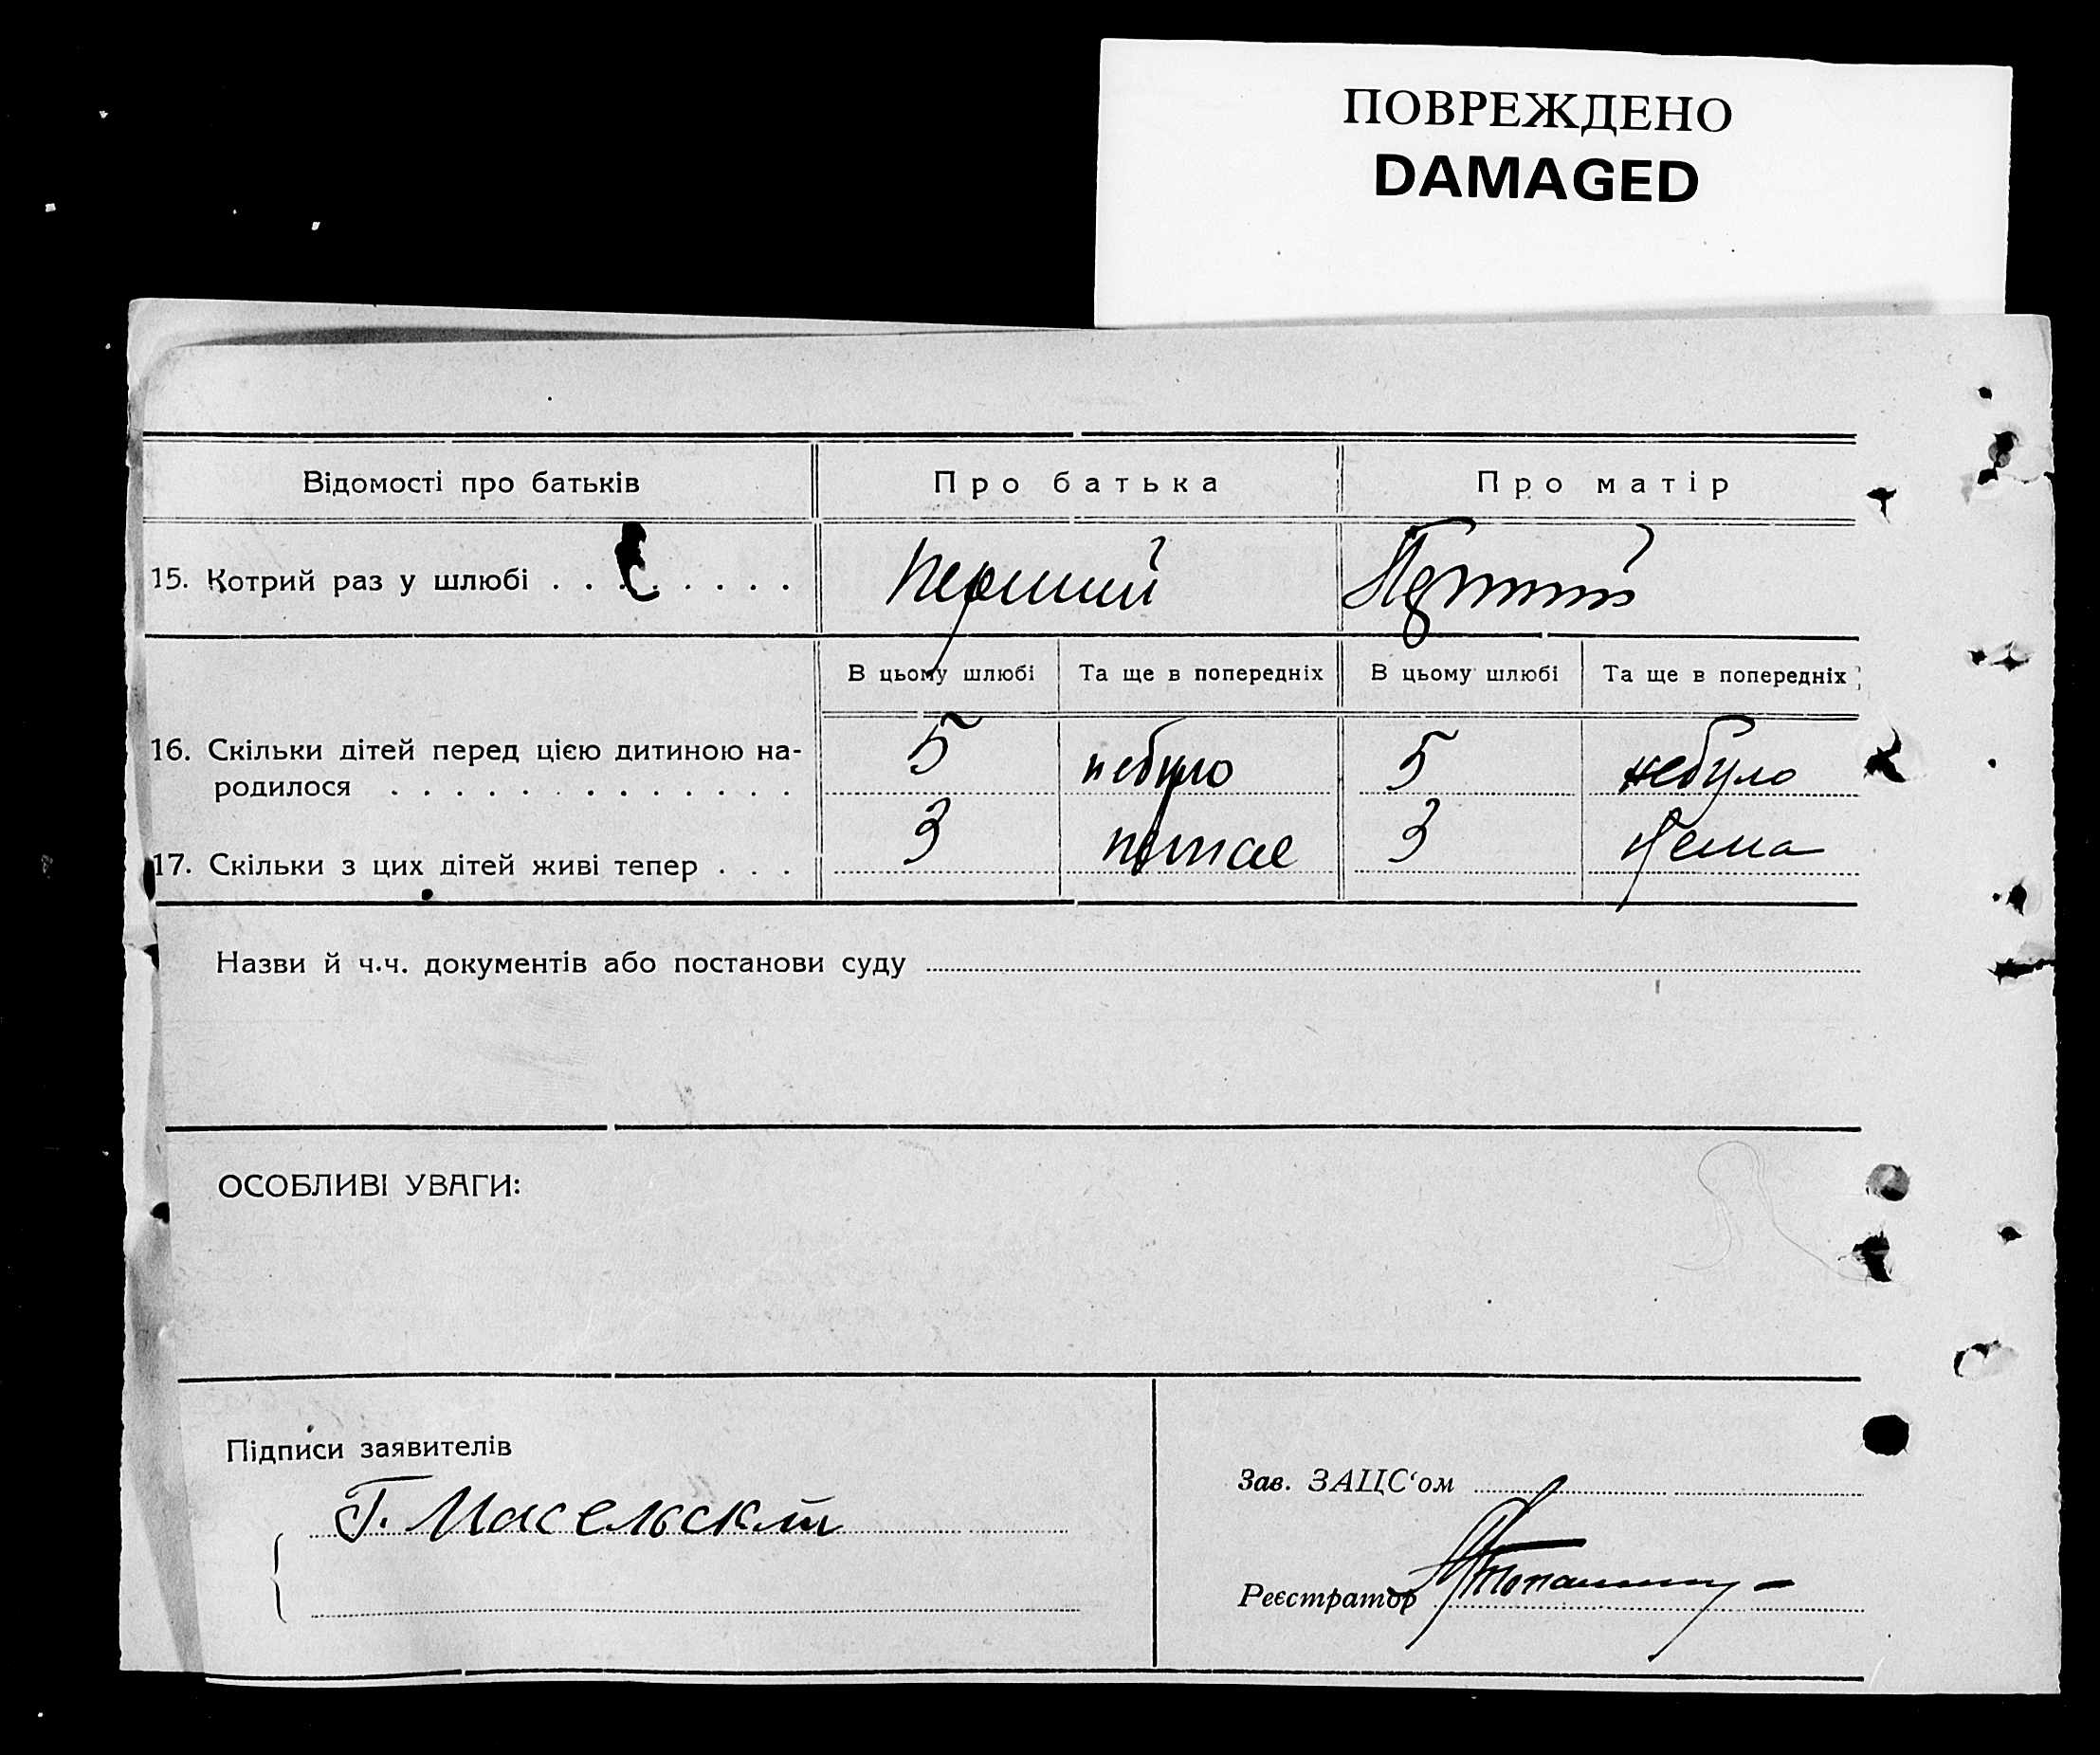 ПОВРЕЖДЕНО
DAMAGED
Відомості про батьків
Про батька
Про матір
15. Котрий раз у шлюбі . . . . . . . .
перший
Перший
В цьому шлюбі
Та ще в попередніх
В цьому шлюбі
Та ще в попередніх
16. Скільки дітей перед цією дитиною на-
родилося . . . . . . . . . . . . .
5
небуло
5
небуло
17. Скільки з цих дітей живі тепер . . .
3
3
Нема
Назви й ч.ч. документів або постанови суду
ОСОБЛИВІ УВАГИ:
Підписи заявителів
Г. Масельский
Зав. ЗАЦС‘ом
Реєстратор